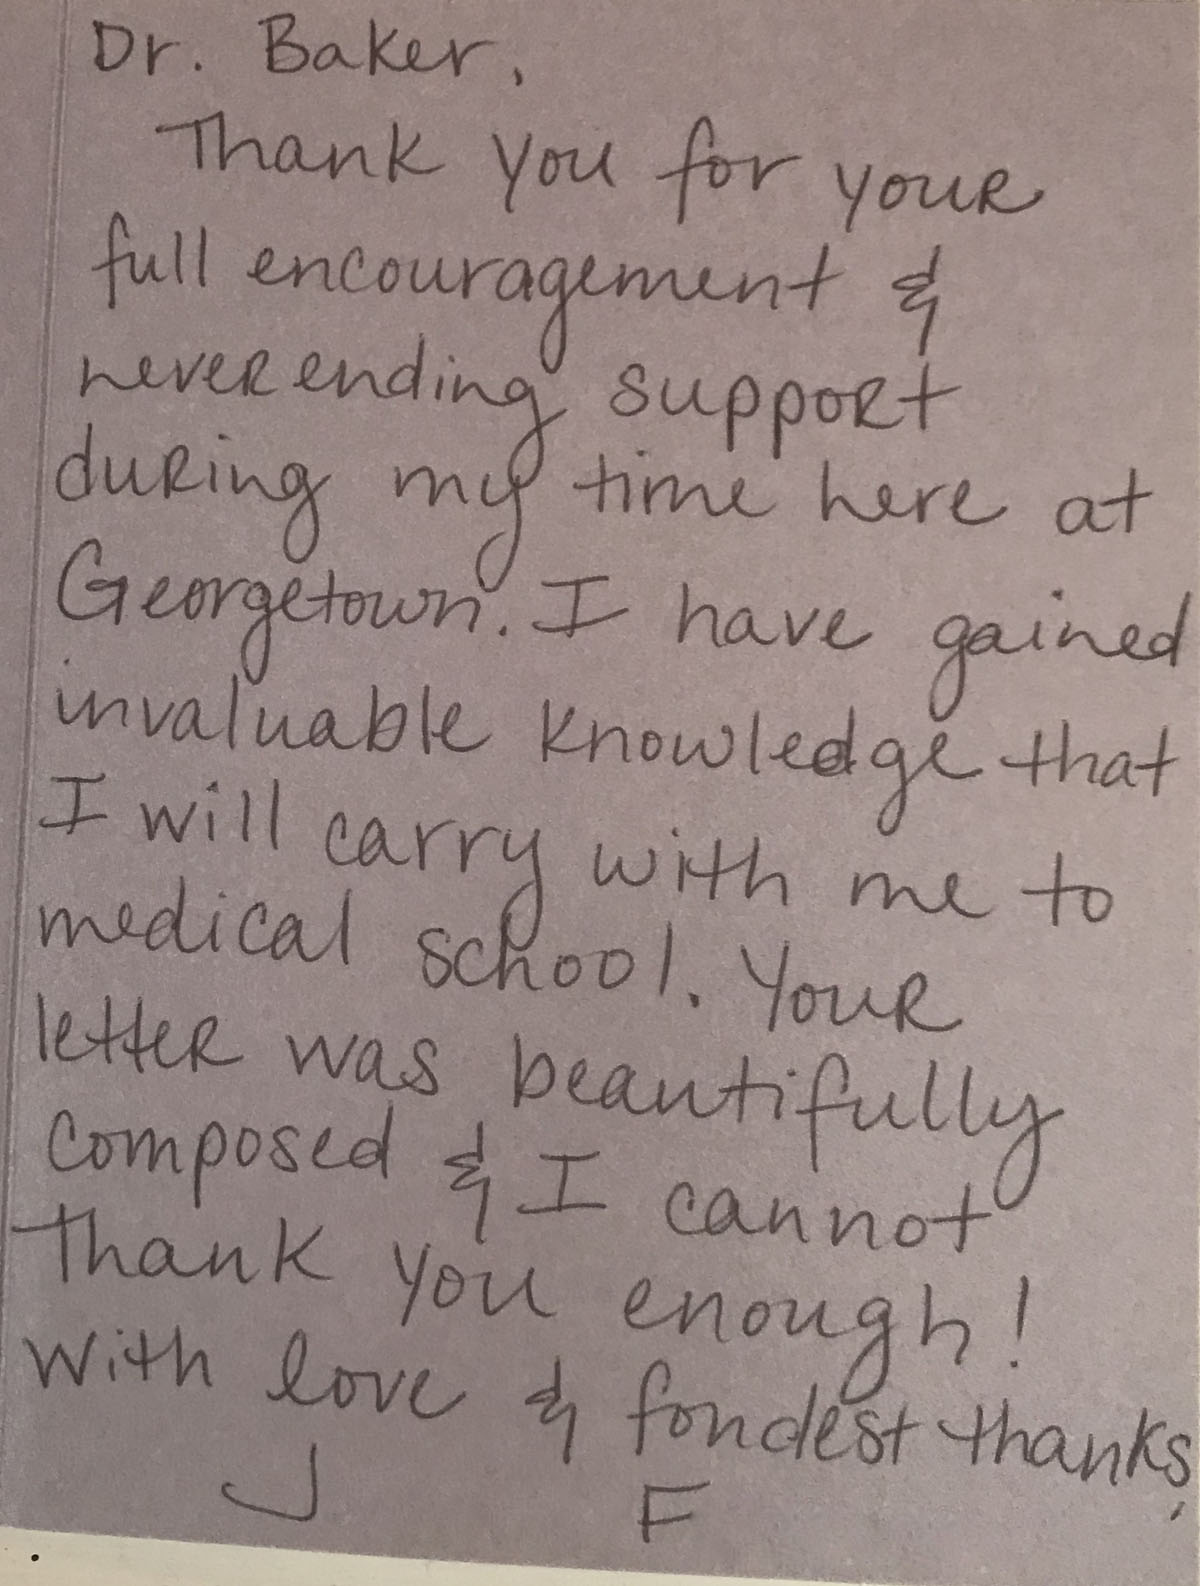 Dr. Baker,
Thank you for your
full encouragement &
never ending support
during my time here at
Georgetown. I have gained
invaluable knowledge that
I will carry with me to
medical school. Your
letter was beautifully
composed & I cannot
thank you enough!
With love & fondest thanks,
J F